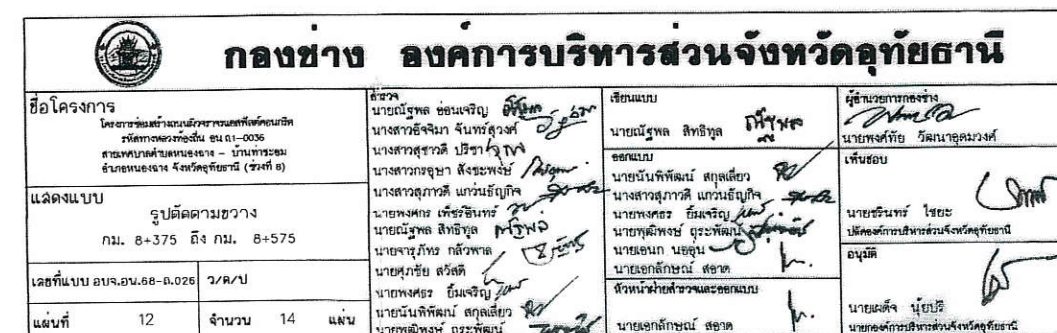 กองช่าง องค์การบริหารส่วนจังหวัดอุทัยธานี
ชื่อโครงการ
โครงการซ่อมสร้างถนนผิวจราจรแอสฟัลต์คอนกรีต
รหัสทางหลวงท้องถิ่น อน ถ1-0036
สายเทศบาลตำบลหนองฉาง - บ้านท่าชะอม
อำเภอหนองฉาง จังหวัดอุทัยธานี (ช่วงที่ 8)
แสดงแบบ
รูปตัดตามขวาง
กม. 8+375 ถึง กม. 8+575
เลขที่แบบ อบจ.อน.68-ถ.026 ว/ด/ป
แผ่นที่ 12 จำนวน 14 แผ่น
สำรวจ
นายณัฐพล อ่อนเจริญ
นางสาวอัจจิมา จันทร์สุวงศ์
นางสาวสุชาวดี ปรีชา
นางสาวกรอุษา สังขะพงษ์
นางสาวสุภาวดี แกว่นธัญกิจ
นายพงศกร เพ็ชรอินทร์
นายณัฐพล สิทธิทูล
นายจารุภัทร กลัวพาล
นายศุภชัย สวัสดี
นายพงศธร ยิ้มเจริญ
นายนันพิพัฒน์ สกุลเลี่ยว
นายพุฒิพงษ์ ฤระพัฒน์
เขียนแบบ
นายณัฐพล สิทธิทูล
ออกแบบ
นายนันพิพัฒน์ สกุลเลี่ยว
นางสาวสุภาวดี แกว่นธัญกิจ
นายพงศธร ยิ้มเจริญ
นายพุฒิพงษ์ ฤระพัฒน์
นายเอนก นออุ่น
นายเอกลักษณ์ สอาด
หัวหน้าฝ่ายสำรวจและออกแบบ
นายเอกลักษณ์ สอาด
ผู้อำนวยการกองช่าง
นายพงศ์ทัย วัฒนาอุดมวงศ์
เห็นชอบ
นายชรินทร์ ไชยะ
ปลัดองค์การบริหารส่วนจังหวัดอุทัยธานี
อนุมัติ
นายเผด็จ นุ้ยปรี
นายกองค์การบริหารส่วนจังหวัดอุทัยธานี